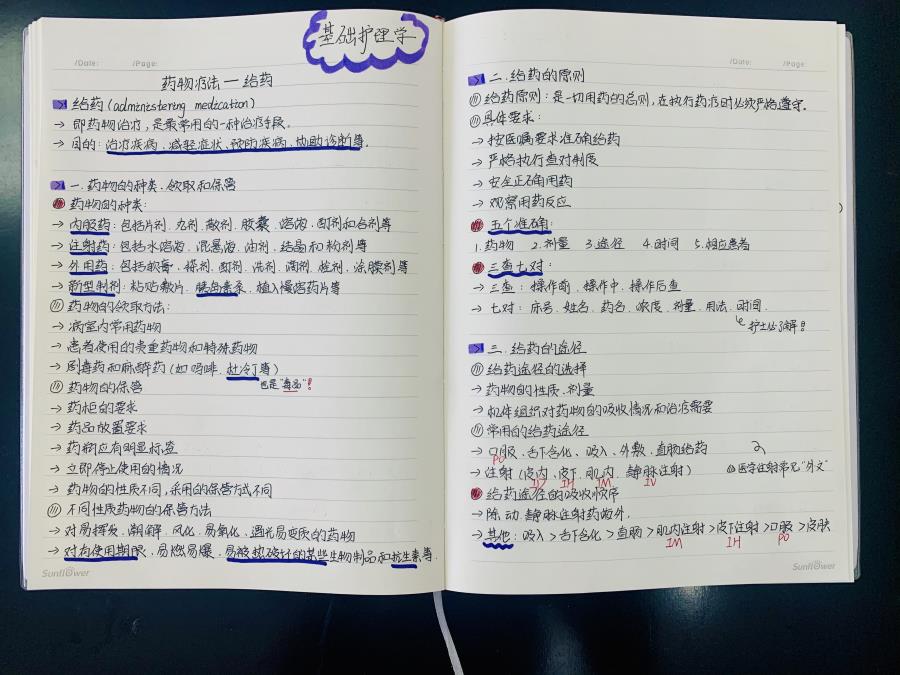 基础护理学
/Date: /Page:
药物疗法一给药
给药(administering medication)
→ 即药物治疗,是最常用的一种治疗手段。
→ 目的:治疗疾病、减轻症状、预防疾病、协助诊断等。
一.药物的种类、领取和保管
药物的种类:
→ 内服药:包括片剂、丸剂、散剂、胶囊、溶液、酊剂和合剂等
→ 注射药:包括水溶液、混悬液、油剂、结晶和粉剂等
→ 外用药:包括软膏、搽剂、酊剂、洗剂、滴剂、栓剂、涂膜剂等
→ 新型制剂:粘贴敷片、胰岛素泵、植入慢溶药片等
药物的领取方法:
→ 病室内常用药物
→ 患者使用的贵重药物和特殊药物
→ 剧毒药和麻醉药(如吗啡、杜冷丁等)
也是"毒品"!
药物的保管
→ 药柜的要求
→ 药品放置要求
→ 药物应有明显标签
→ 立即停止使用的情况
→ 药物的性质不同,采用的保管方式不同
不同性质药物的保管方法
→ 对易挥发、潮解、风化、易氧化、遇光易变质的药物
→ 对有使用期限、易燃易爆、易被热破坏的某些生物制品和抗生素等.
Sunflower
/Date: /Page:
二.给药的原则
给药原则:是一切用药的总则,在执行药疗时必须严格遵守.
具体要求:
→ 按医嘱要求准确给药
→ 严格执行查对制度
→ 安全正确用药
→ 观察用药反应
五个准确:
1.药物 2.剂量 3.途径 4.时间 5.相应患者
三查七对:
→ 三查:操作前、操作中、操作后查
→ 七对:床号、姓名、药名、浓度、剂量、用法、时间.
护士必了解!
三.给药的途径
给药途径的选择
→ 药物的性质、剂量
→ 机体组织对药物的吸收情况和治疗需要
常用的给药途径
→ 口服、舌下含化、吸入、外敷、直肠给药
PO
→ 注射(皮内、皮下、肌内、静脉注射) 医学注射常见"外文"
ID IH IM IV
给药途径的吸收顺序
→ 除动、静脉注射药液外.
→ 其他:吸入>舌下含化>直肠>肌内注射>皮下注射>口服>皮肤
IM IH PO
Sunflower